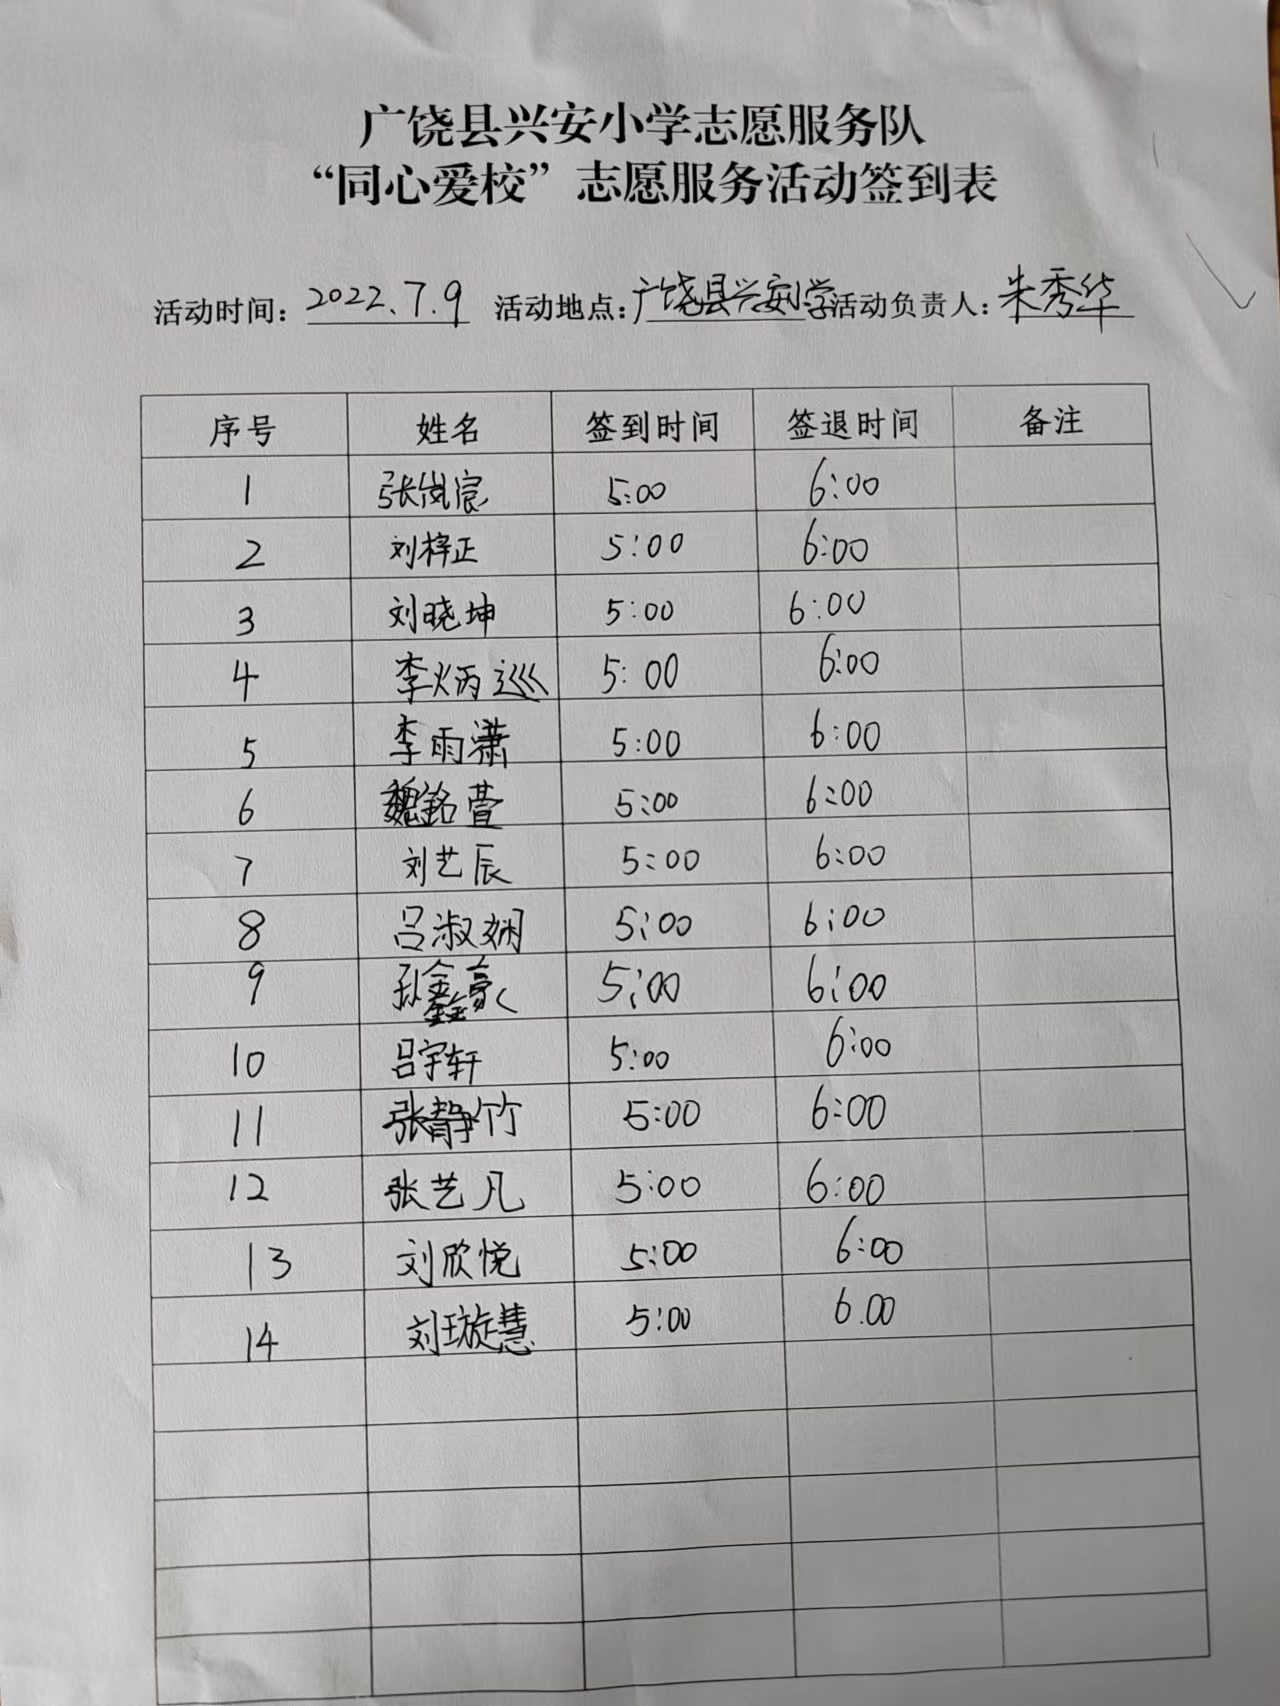 广饶县兴安小学志愿服务队
“同心爱校”志愿服务活动签到表
活动时间：2022.7.9 活动地点：广饶县兴安小学活动负责人：朱秀华
序号 姓名 签到时间 签退时间 备注
1 张岚宸 5:00 6:00
2 刘梓正 5:00 6:00
3 刘晓坤 5:00 6:00
4 李炳巡 5:00 6:00
5 李雨潇 5:00 6:00
6 魏铭萱 5:00 6:00
7 刘艺辰 5:00 6:00
8 吕淑娴 5:00 6:00
9 孙鑫豪 5:00 6:00
10 吕宇轩 5:00 6:00
11 张静竹 5:00 6:00
12 张艺凡 5:00 6:00
13 刘欣悦 5:00 6:00
14 刘璇慧 5:00 6.00